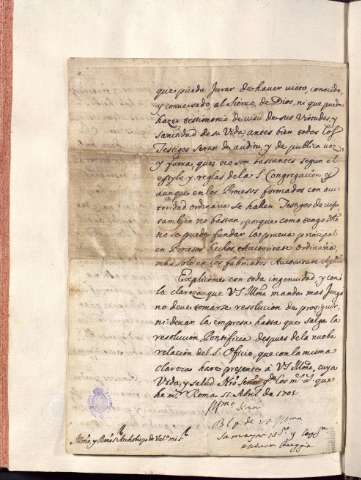 que pueda Jurar de haver visto, conocido,
y conversado al Siervo de Dios, ni que pueda
hazer testimonio de visu de sus Virtudes y
santidad de su Vida, antes bien todos los
Testigos seran de auditu, y de publica voz
y fama, que no son bastantes segun el
estyle, y reglas de la S. Congregación, y
aunque en los Procesos formados con auc-
toridad ordinaria se hallen Testigos de visu
tambien no bastan, porque como tengo dicho
no se puede fundar la prueva principal
en Procesos hechos Auctoritate Ordinaria
mas solo en los fabricados Auctoritate Apca
Explicome con toda ingenuidad, y con
la claridad que VS Illma manda, mas Juzgo
no deve tomarse resolución de proseguir
ni dexar la empresa hasta que salga la
resolucion Pontificia despues de la nueba
relación del S. Officio, que con la misma
claridad haré presente a VS Illma, cuya
Vida, y salud Nro Señor gde los ms as que
he mr Roma 11 Abril de 1701
Illmo Señor
B l m de VS Illma
su mayor
Illmo, y Rmo Sr Arzobispo de Vala mi Sr